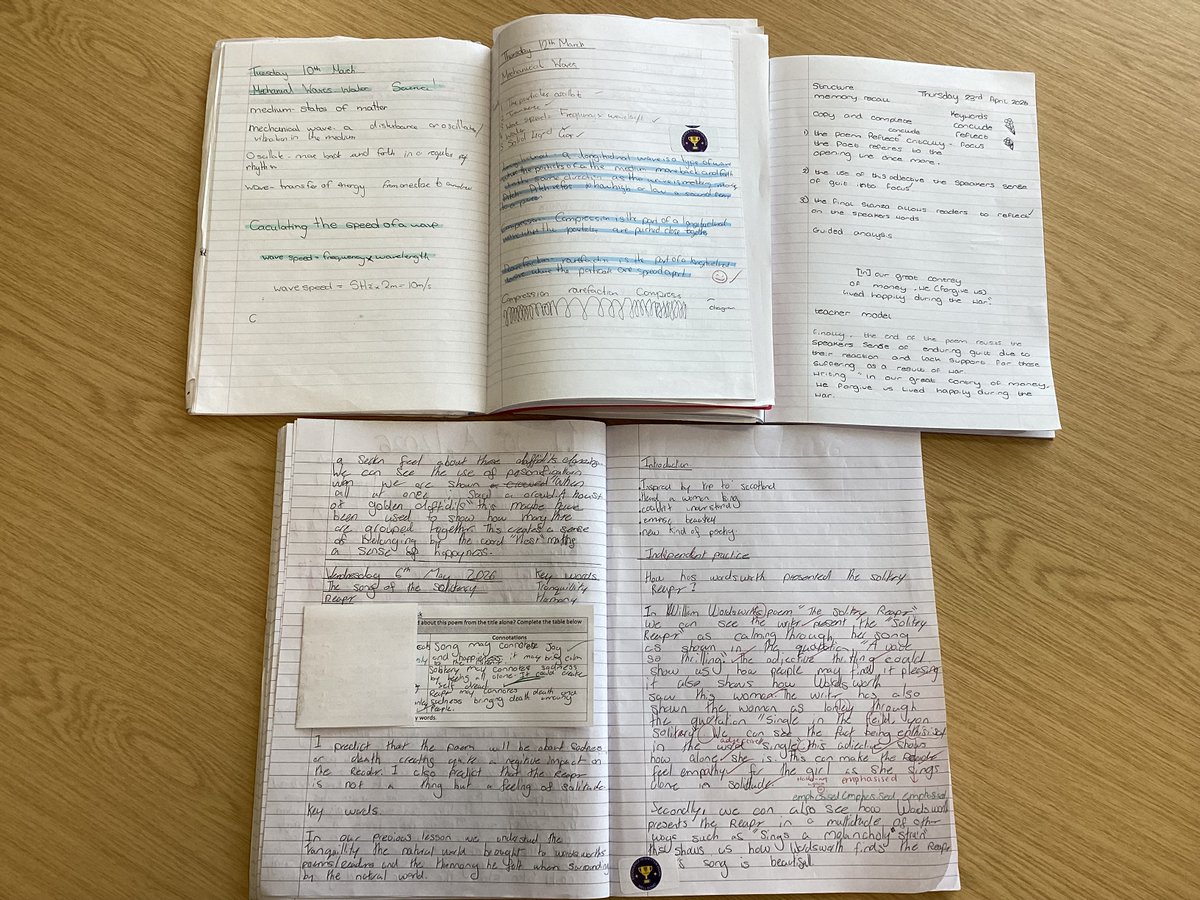 Tuesday 10th March
Mechanical Waves Water Science
medium- states of matter
mechanical wave- a disturbance or oscillate/
vibration in the medium
Oscillate- move back and forth in a regular
rhythm
wave- transfer of energy from one place to another
Caculating the speed of a wave
wave speed = frequency x wavelength
wave speed = 5Hz x 2m = 10m/s
C
Thursday 12th March
Mechanical Waves
The particles oscillat
Transverse
wave speed = Frequency x wavelength
Water
Solid liquid Gas
longitudinal - a longitudinal wave is a type of wave
where the particles of the medium move back and forth
in the same direction as the wave is
Pitch- Pitch refers to how high or low a sound
to a person
Compression- Compression is the part of a longitudinal
where the particles are pushed close together
Rarefaction- rarefaction is the part of a longitudinal
where the particals are spread apart
Compression rarefraction Compress
diagram
Structure
memory recall Thursday 23rd April 2026
Copy and complete Keywords
conclude conclude
reflect
1) the poem Reflect critically - Focus
the Poet referes to the
opening line once more.
2) the use of this adjective the speakers sense
of guilt into focus
3) the final stanza allows readers to reflect
on the speakers words
Guided analysis
[in] our great contrey
of money, we (forgive us)
lived happily during the war."
teacher model
Finally, the end of the poem reveals the
speakers sense of enduring guilt due to
their reaction and lack support for those
suffering as a results of war.
writing "in our great contry of money,
we forgive us lived happily during the
war.
a seen feel about these
We can see the use of personification
when we are shown "When
all at once i saw a croud, A houst
of golden daffidils" this maybe have
been used to show how many
are grouped together. This creates a sense
of belonging by the word "Host" making
a sense of happyness.
Wednesday 6th May 2026 Key words
The song of the solitary Tranquility
Reapr Harmony
about this poem from the title alone? Complete the table below
Connotations
Song may connotate Joy
and happieness it may bring calm
Solitary may connotes sadness
by being all alone. It could create
self
Reapr may connotes death and
sadness bringing death among
People.
y words.
I predict that the poem will be about sadness
or death creating quite a negitive impact on
the Reader. I also predict that the Reapr
is not a thing but a feeling of solitude.
Key words.
In our previous lesson we understud the
tranquillity the natural world brought to wordsworths
poems/readers and the Harmony he felt when surrounding
by the natural world.
Introduction
.Inspired by trip to Scotland
.Heard a women sing
.couldn't understand
.new kind of poetry.
Independent practice
How has wordsworth presented the solitry
Reapr?
In William Wordsworths poem "The solitry Reapr"
we can see the writer present the "Solitry
Reapr" as calming through her song
as shown in the quotation "A voice
so thrilling". The adjective thrilling could
show us how people may find it pleasing
it also shows how Wordsworth
saw this woman. The writr has also
shown the woman as lonley through
the quotation "Single in the field, yon
solitary". We can see the fact being enthisised
in the word "single", this adjective shows
adjective
how alone she is. this can make the Reader
feel empathy for the girl as she sings
alone in solitude. emphasised
emphasised emphasised emphasised
Secondly, we can also see how Wordsworth
presents the Reapr in a multitude of other
ways such as "Sings a melancholy strain"
this shows us how Wordsworth finds the Reapr
s song is beautifull